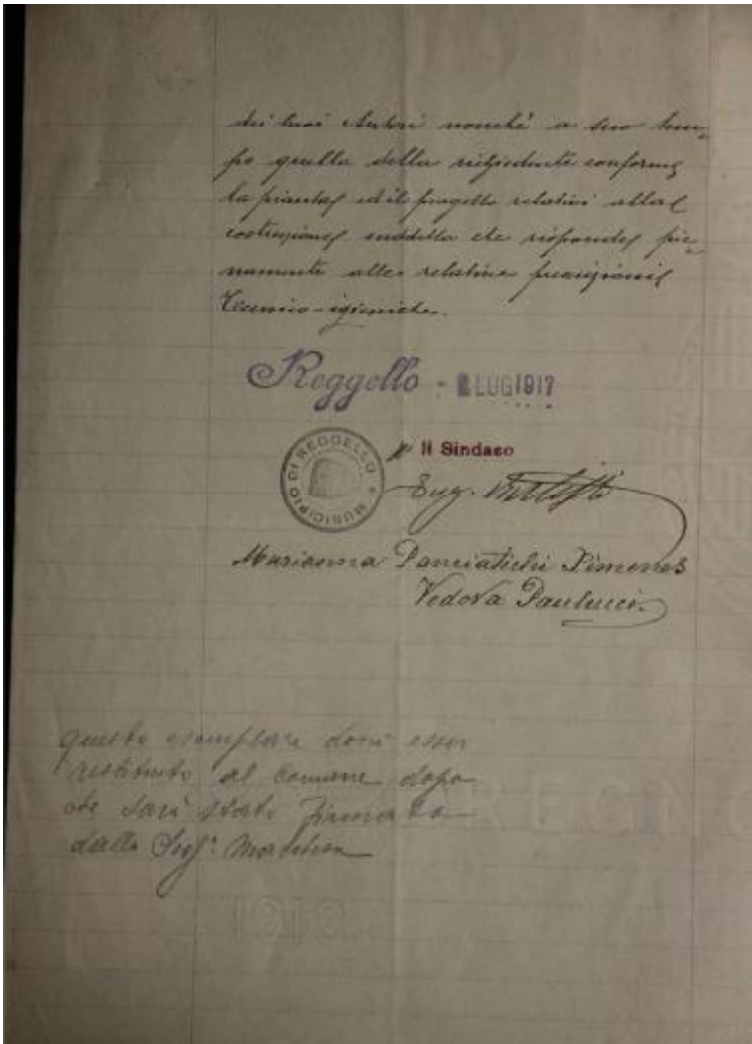 dei suoi Autori nonchè a suo tem-
po quella della richiedente conforme
la pianta ed il progetto relativi alla
costruzione suddetta che risponde pie-
namente alle relative prescrizioni
Tecnico-igieniche.
Reggello - 2 LUG 1917
Il Sindaco
MUNICIPIO DI REGGELLO
Eug.
Marianna Panciatichi Ximenes
Vedova Paulucci
questo esemplare dovrà esser
restituito al Comune dopo
che sarà stato firmato
dalla Sigª Marchesa